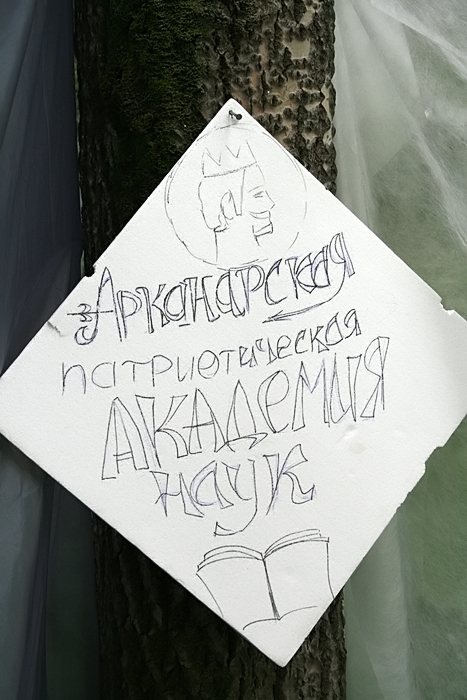 Арканарская
патриотическая
АКАДЕМИЯ
наук